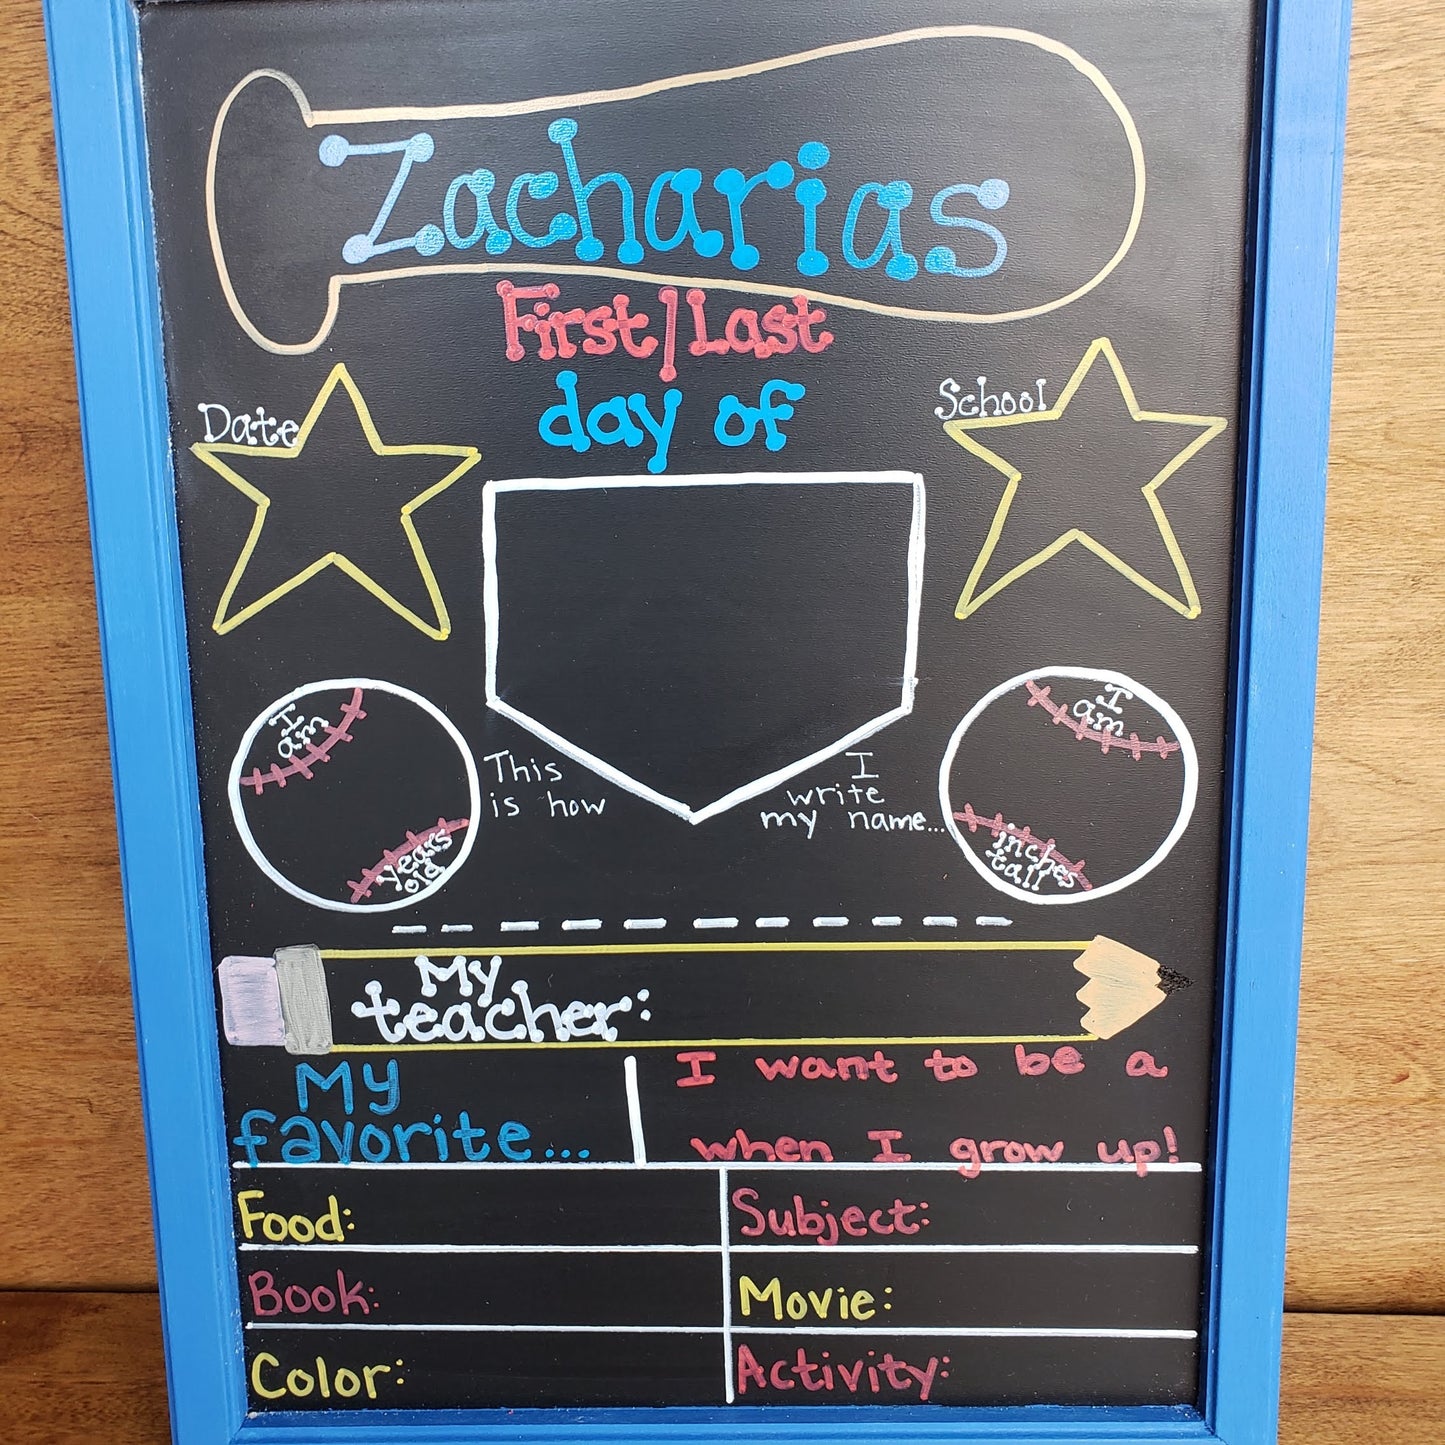 Zacharias
First/Last
day of
Date
School
I
am
years
old
This
is how
I
write
my name...
I
am
inches
tall
My
teacher:
My
favorite...
I want to be a
when I grow up!
Food:
Subject:
Book:
Movie:
Color:
Activity: